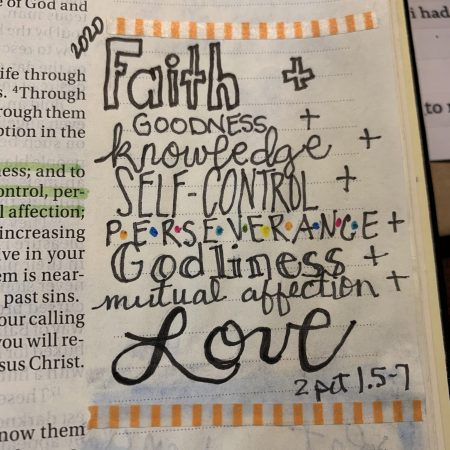 e of God and
ife through
s. ⁴Through
rough them
ption in the
ness; and to
ontrol, per-
l affection;
increasing
ive in your
em is near-
past sins.
our calling
you will re-
sus Christ.
now them
2020
Faith +
GOODNESS +
knowledge +
SELF-CONTROL +
P·E·R·S·E·V·E·R·A·N·C·E +
Godliness +
mutual affection +
Love
2 pet 1.5-7
i had
to